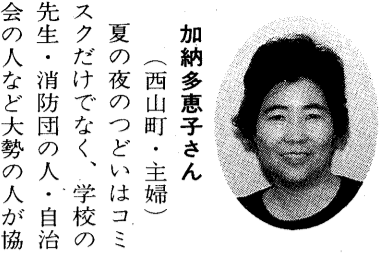 加納多恵子さん
（西山町・主婦）
夏の夜のつどいはコミ
スクだけでなく、学校の
先生・消防団の人・自治
会の人など大勢の人が協